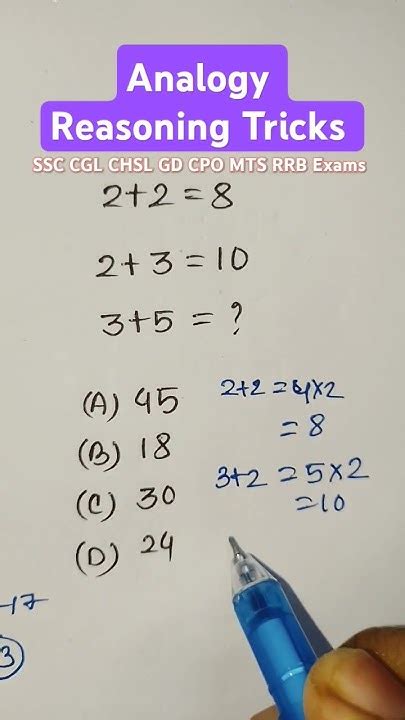 Analogy
Reasoning Tricks
SSC CGL CHSL GD CPO MTS RRB Exams
2+2=8
2+3=10
3+5=?
(A) 45
(B) 18
(C) 30
(D) 24
2+2=4×2
=8
3+2=5×2
=10
-17
3